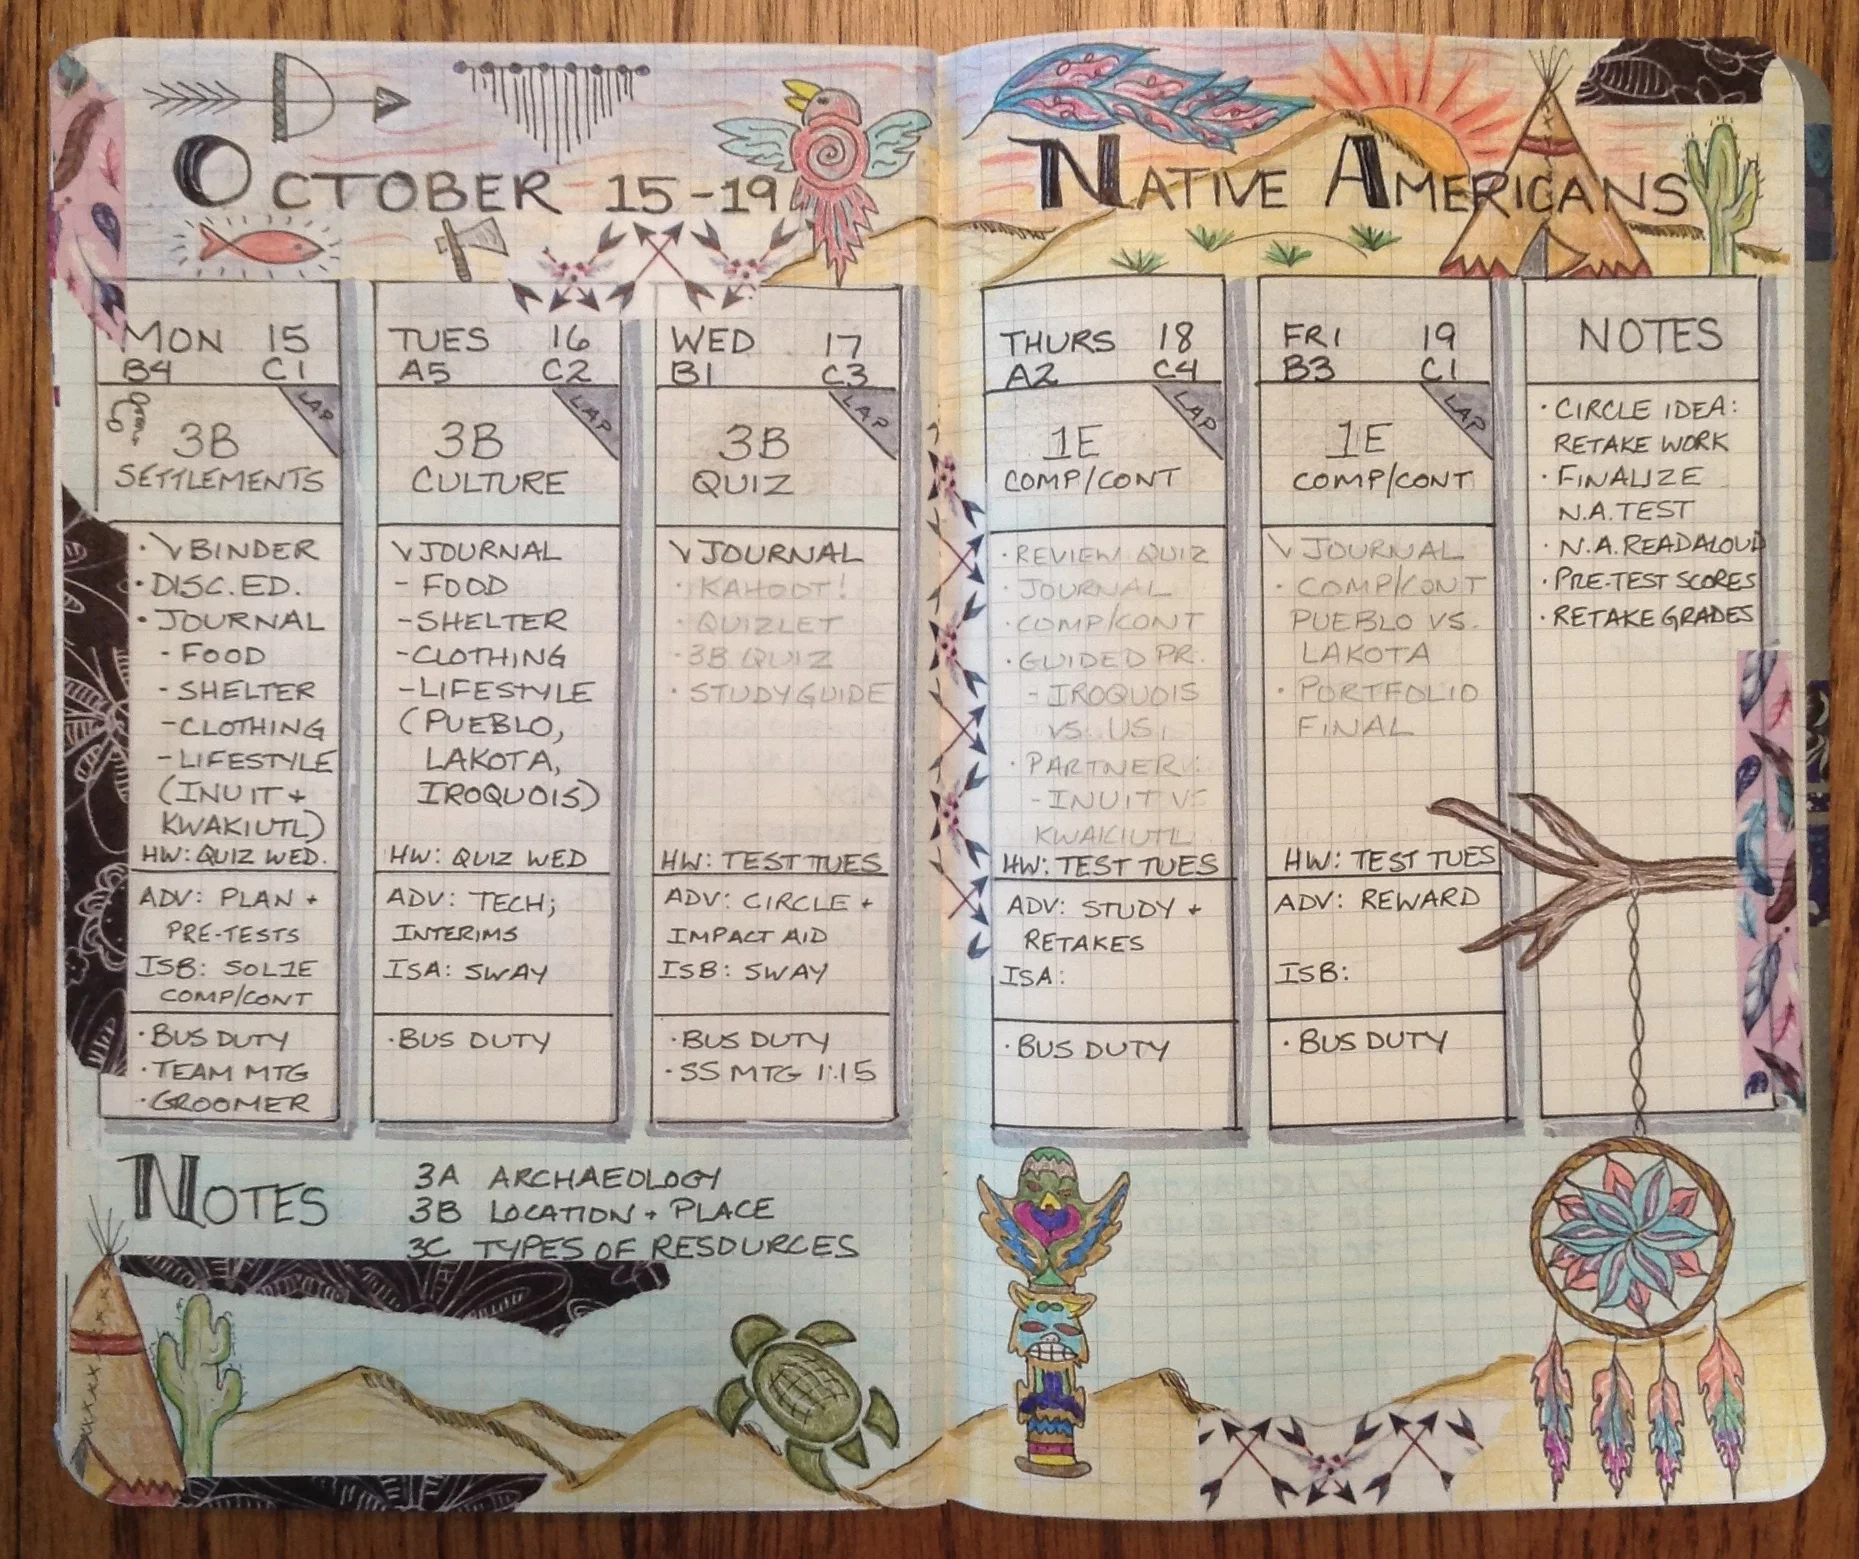 OCTOBER 15-19
NATIVE AMERICANS
MON 15
B4 C1
LAP
3B
SETTLEMENTS
· √ BINDER
· DISC. ED.
· JOURNAL
- FOOD
- SHELTER
- CLOTHING
- LIFESTYLE
(INUIT +
KWAKIUTL)
HW: QUIZ WED.
ADV: PLAN +
PRE-TESTS
ISB: SOL1E
COMP/CONT
· BUS DUTY
· TEAM MTG
· GROOMER
TUES 16
A5 C2
LAP
3B
CULTURE
√ JOURNAL
- FOOD
- SHELTER
- CLOTHING
- LIFESTYLE
(PUEBLO,
LAKOTA,
IROQUOIS)
HW: QUIZ WED
ADV: TECH;
INTERIMS
ISA: SWAY
· BUS DUTY
WED 17
B1 C3
LAP
3B
QUIZ
√ JOURNAL
· KAHOOT!
· QUIZLET
· 3B QUIZ
· STUDY GUIDE
HW: TEST TUES
ADV: CIRCLE +
IMPACT AID
ISB: SWAY
· BUS DUTY
· SS MTG 1:15
THURS 18
A2 C4
LAP
1E
COMP/CONT
· REVIEW QUIZ
· JOURNAL
· COMP/CONT
· GUIDED PR.
- IROQUOIS
VS. US.
· PARTNER:
- INUIT VS
KWAKIUTL
HW: TEST TUES
ADV: STUDY +
RETAKES
ISA:
· BUS DUTY
FRI 19
B3 C1
LAP
1E
COMP/CONT
√ JOURNAL
· COMP/CONT
PUEBLO VS.
LAKOTA
· PORTFOLIO
FINAL
HW: TEST TUES
ADV: REWARD
ISB:
· BUS DUTY
NOTES
· CIRCLE IDEA:
RETAKE WORK
· FINALIZE
N.A. TEST
· N.A. READALOUD
· PRE-TEST SCORES
· RETAKE GRADES
NOTES
3A ARCHAEOLOGY
3B LOCATION + PLACE
3C TYPES OF RESOURCES